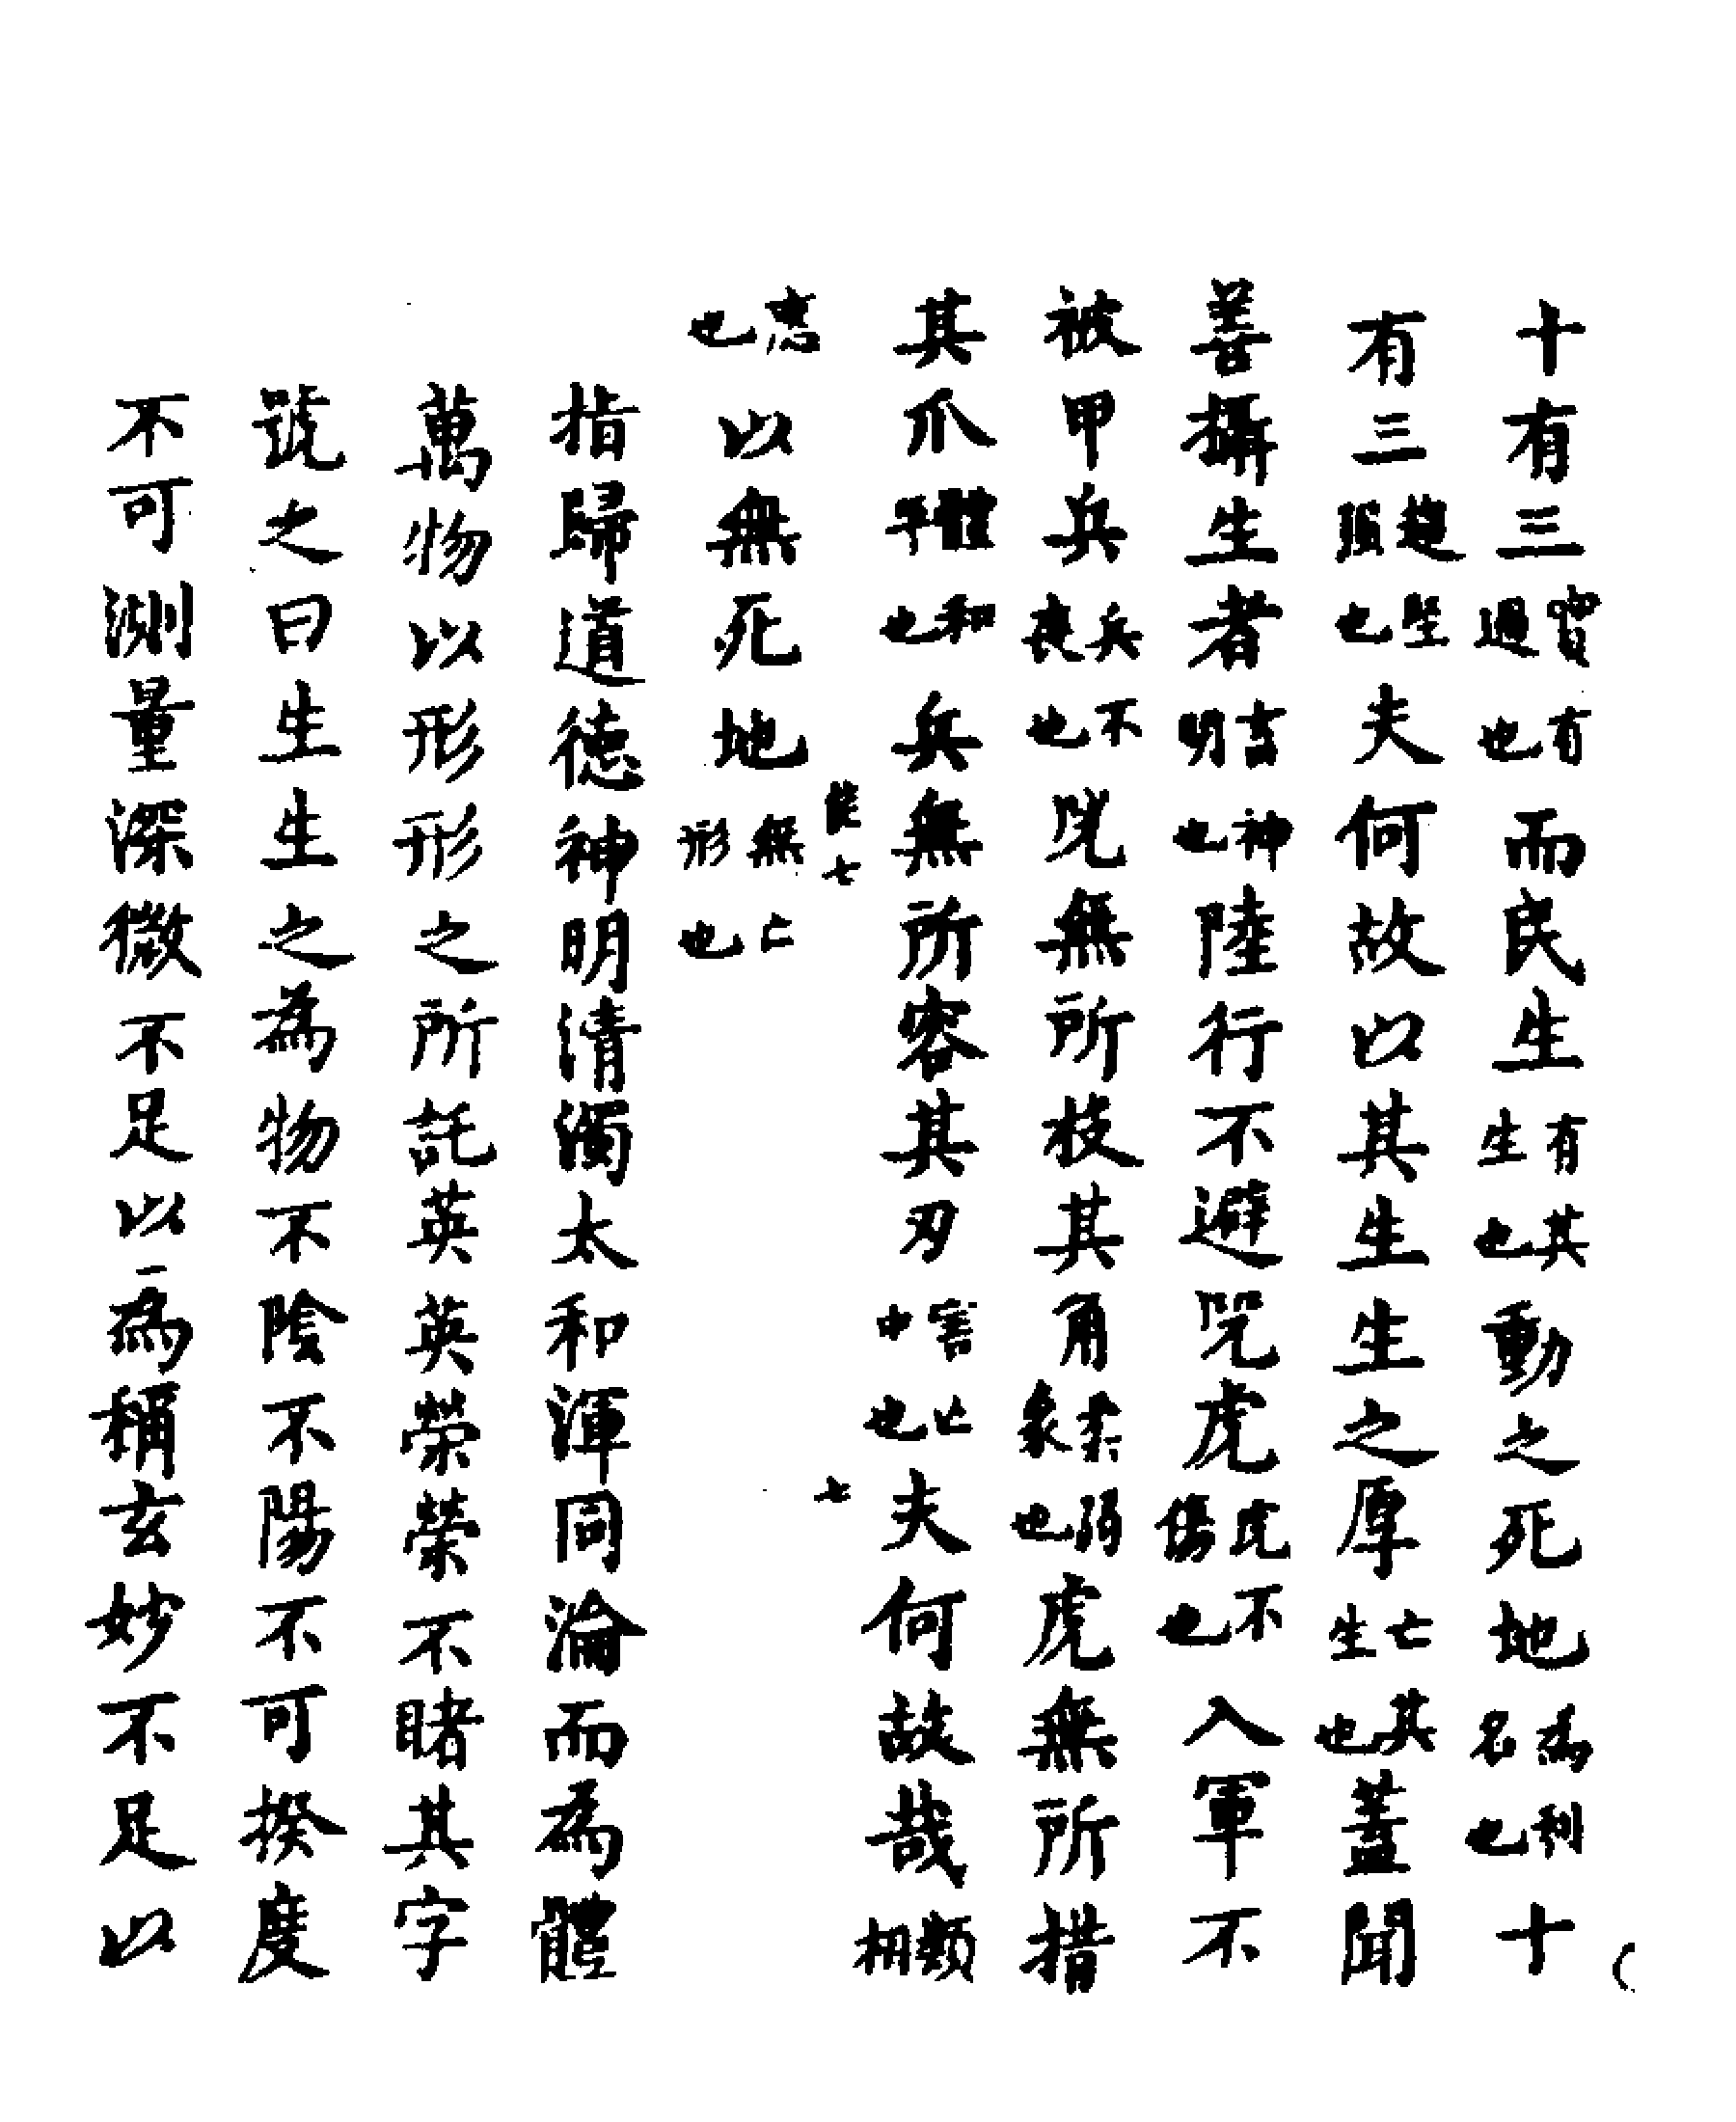 十有三實有過也而民生有其生也動之死地為利名也十
有三趣堅強也夫何故以其生生之厚亡其生也蓋聞
善攝生者言神明也陸行不避兕虎虎不傷也入軍不
被甲兵兵不喪也兕無所枝其角柔弱象也虎無所措
其爪體和平也兵無所容其刃害亡中也夫何故哉類相
七
從七
恋也以無死地無亡形也
指歸道德神明清濁太和渾同淪而為體
萬物以形形之所託英英榮榮不睹其字
號之曰生生之為物不陰不陽不可揆度
不可測量深微不足以為稱玄妙不足以